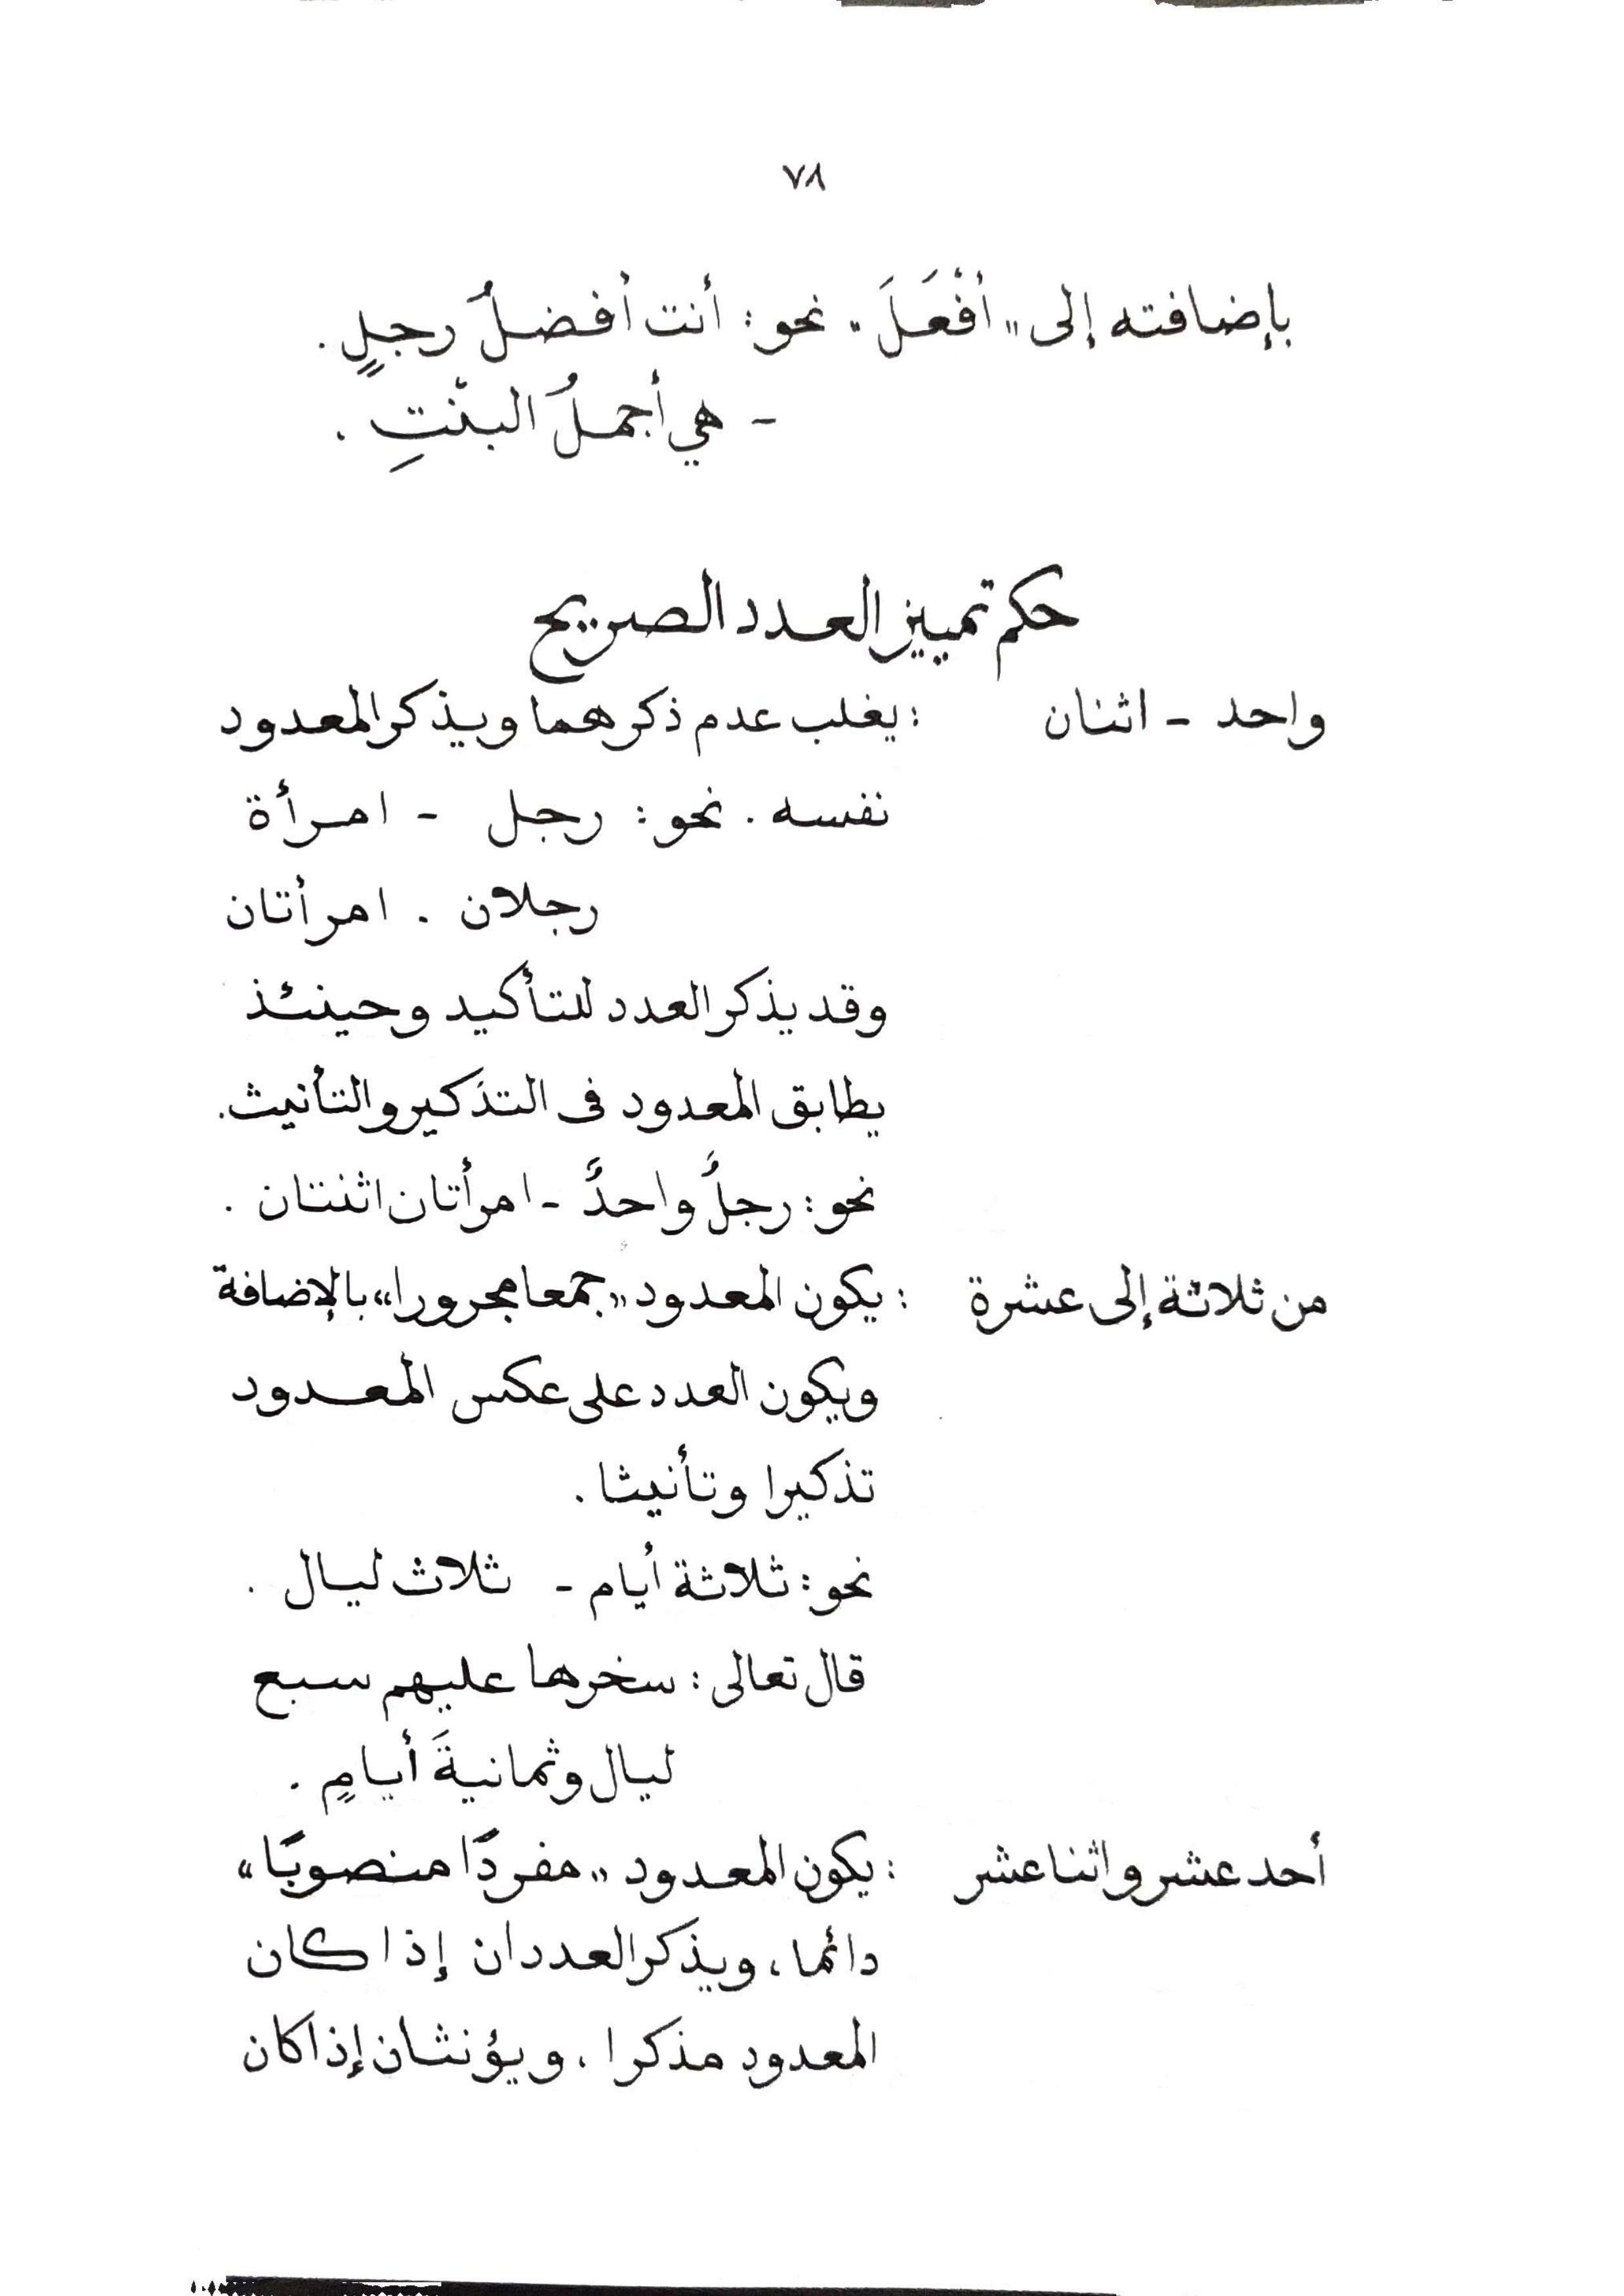 ٧٨
بإضافته إلى "أَفْعَلَ" نحو: أنت أفضلُ رجلٍ.
- هي أجملُ البنْتِ.
حكم تمييز العدد الصريح
واحد - اثنان : يغلب عدم ذكرهما ويذكر المعدود
نفسه. نحو: رجل - امرأة
رجلان . امرأتان
وقد يذكر العدد للتأكيد وحينئذ
يطابق المعدود فى التذكير والتأنيث.
نحو: رجلٌ واحدٌ - امرأتان اثنتان .
من ثلاثة إلى عشرة : يكون المعدود "جمعا مجرورا" بالإضافة
ويكون العدد على عكس المعدود
تذكيرا وتأنيثا.
نحو: ثلاثة أيام - ثلاث ليال .
قال تعالى: سخرها عليهم سبع
ليال وثمانيةَ أيامٍ .
أحد عشر واثنا عشر : يكون المعدود "مفردًا منصوبًا"
دائما، ويذكر العددان إذا كان
المعدود مذكرا، ويؤنثان إذا كان